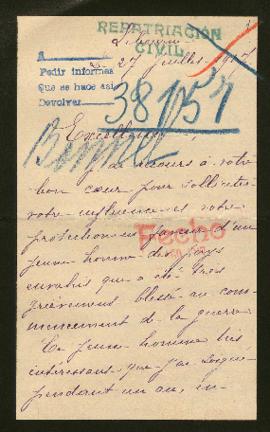 REPATRIACIÓN
CIVIL
27 Juillet 1917
A
Pedir informes
Que se hace así
Devolver
38157
Excellence
J'ai recours à votre
bon cœur pour solliciter
votre influence et votre
protection en faveur d'un
jeune homme des pays
envahis qui a été très
grièvement blessé au com-
mencement de la guerre.
Fecho
Ce jeune homme très
intéressant que j'ai soigné
pendant un an, en-